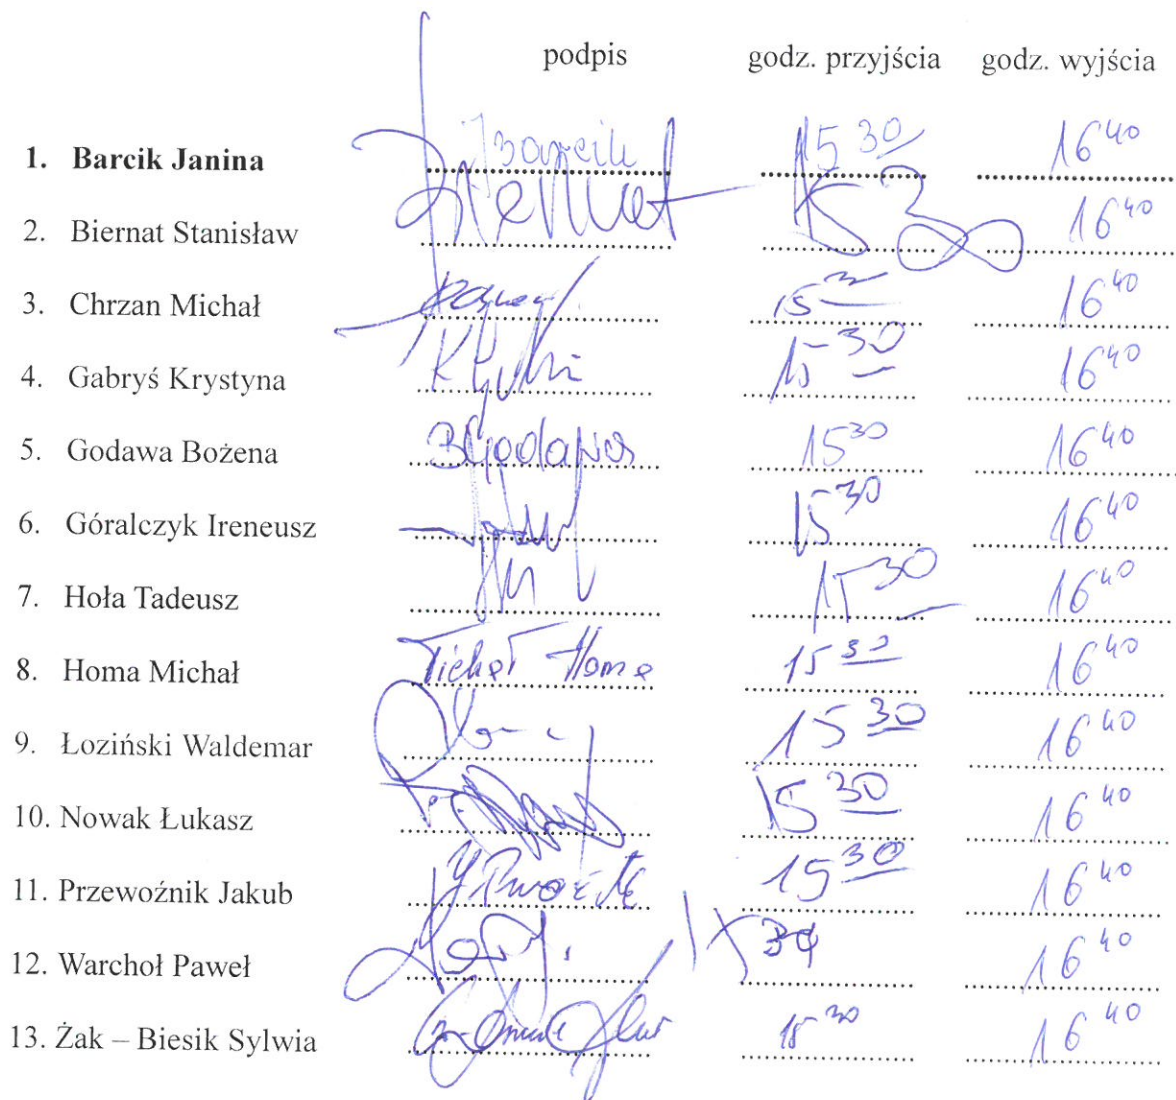 podpis godz. przyjścia godz. wyjścia
1. Barcik Janina Barcik 15 30 16 40
2. Biernat Stanisław Biernat 15 30 16 40
3. Chrzan Michał 15 30 16 40
4. Gabryś Krystyna 15 30 16 40
5. Godawa Bożena BGodawa 15 30 16 40
6. Góralczyk Ireneusz 15 30 16 40
7. Hoła Tadeusz 15 30 16 40
8. Homa Michał Michał Homa 15 30 16 40
9. Łoziński Waldemar 15 30 16 40
10. Nowak Łukasz 15 30 16 40
11. Przewoźnik Jakub 15 30 16 40
12. Warchoł Paweł 15 30 16 40
13. Żak – Biesik Sylwia 15 30 16 40